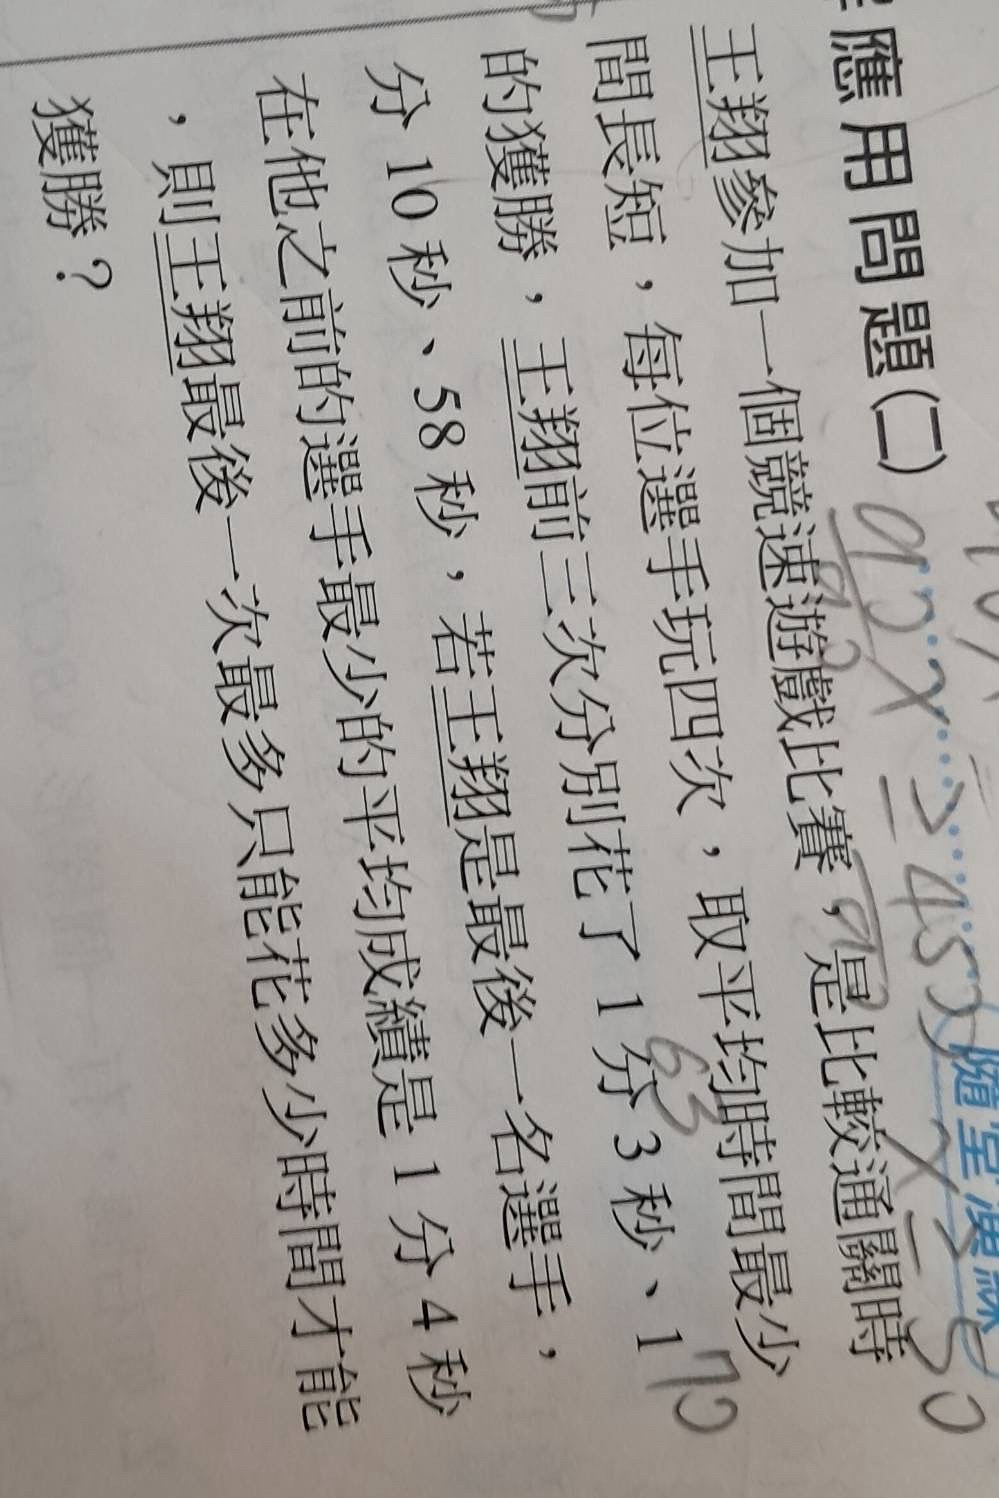 解應用問題(二)
隨堂演練
王翔參加一個競速遊戲比賽，是比較通關時
間長短，每位選手玩四次，取平均時間最少
的獲勝，王翔前三次分別花了1分3秒、1
63
70
分10秒、58秒，若王翔是最後一名選手，
在他之前的選手最少的平均成績是1分4秒
，則王翔最後一次最多只能花多少時間才能
獲勝？